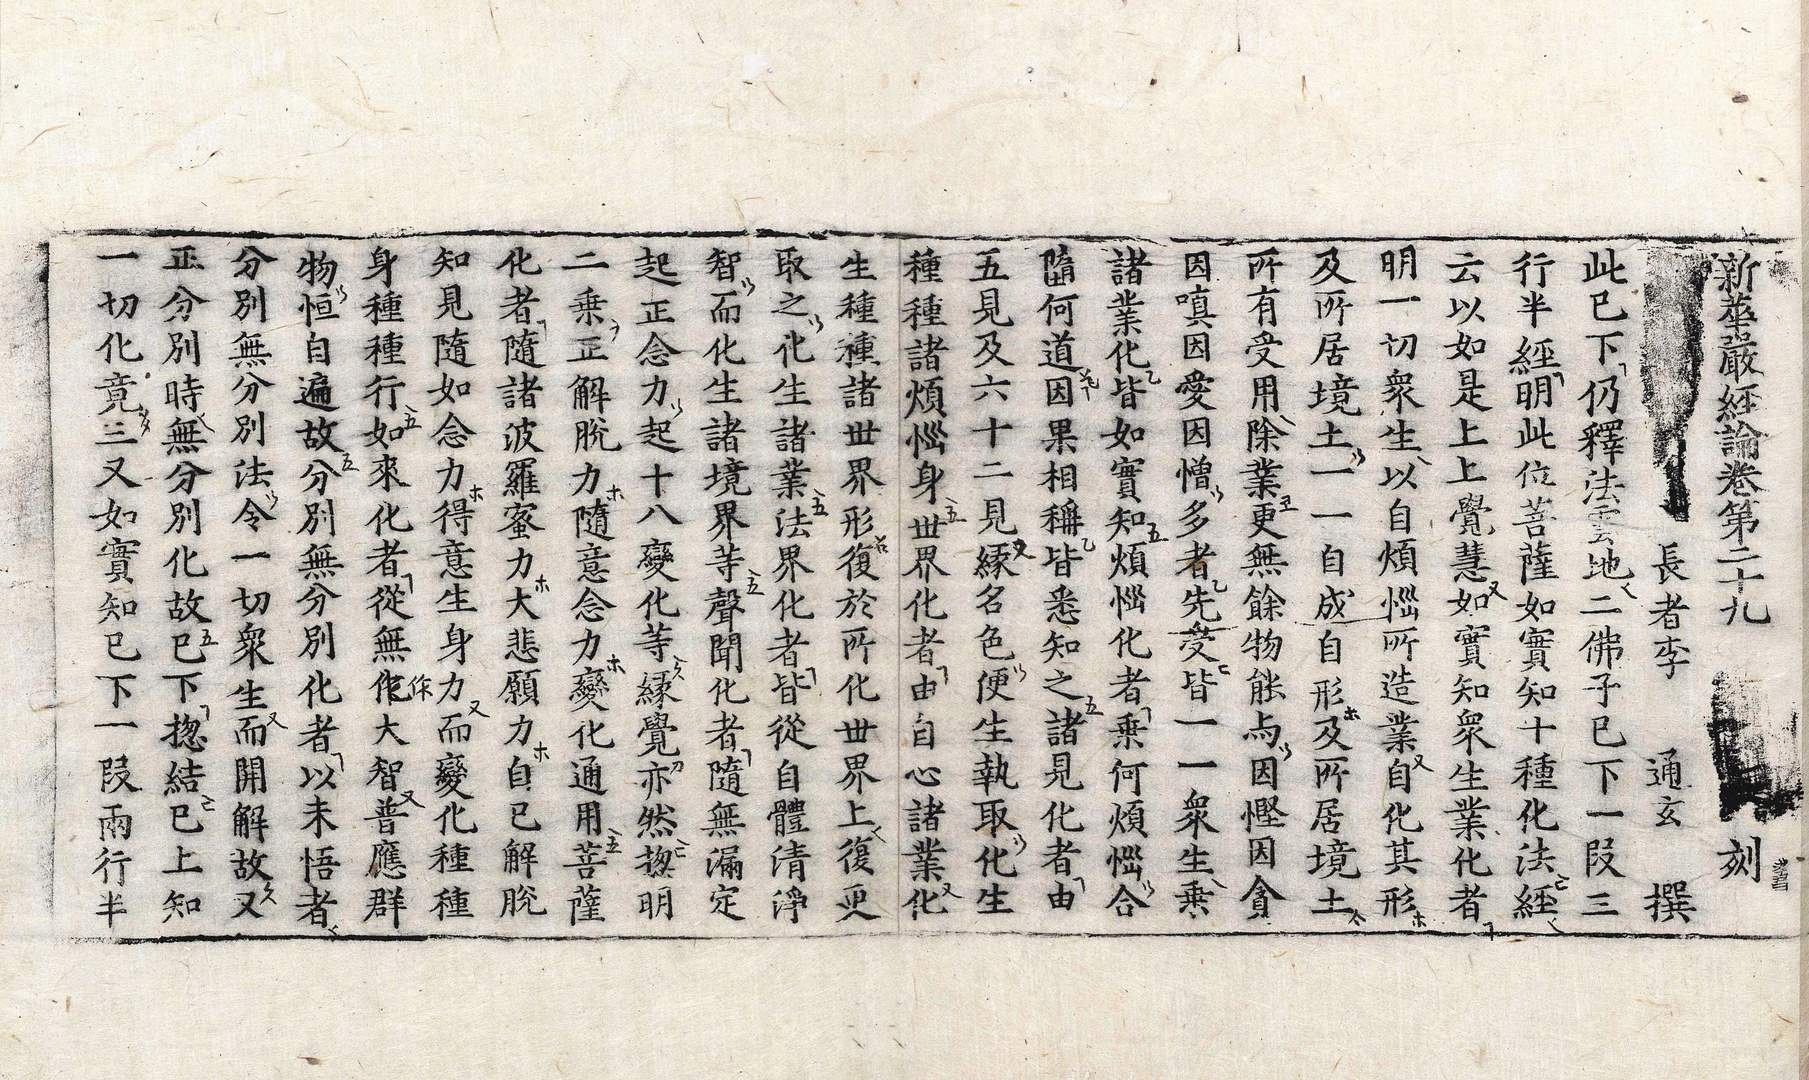 新華嚴經論卷第二十九　刻
長者李　通玄　撰
此已下仍釋法雲地二佛子已下一段三
行半經明此位菩薩如實知十種化法經
云以如是上上覺慧如實知衆生業化者
明一切衆生以自煩惱所造業自化其形
及所居境土一一自成自形及所居境土
所有受用除業更無餘物能与因慳因貪
因嗔因愛因憎多者先受皆一一衆生乗
諸業化皆如實知煩惱化者乗何煩惱合
隨何道因果相稱皆悉知之諸見化者由
五見及六十二見縁名色便生執取化生
種種諸煩惱身世界化者由自心諸業化
生種種諸世界形復於所化世界上復更
取之化生諸業法界化者皆從自體清淨
智而化生諸境界等聲聞化者隨無漏定
起正念力起十八變化等縁覺亦然揔明
二乗正解脫力隨意念力變化通用菩薩
化者隨諸波羅蜜力大悲願力自已解脫
知見隨如念力得意生身力而變化種種
身種種行如來化者從無作大智普應群
物恒自遍故分別無分別化者以未悟者
分別無分別法令一切衆生而開解故又
正分別時無分別化故已下揔結已上知
一切化竟三又如實知已下一段兩行半